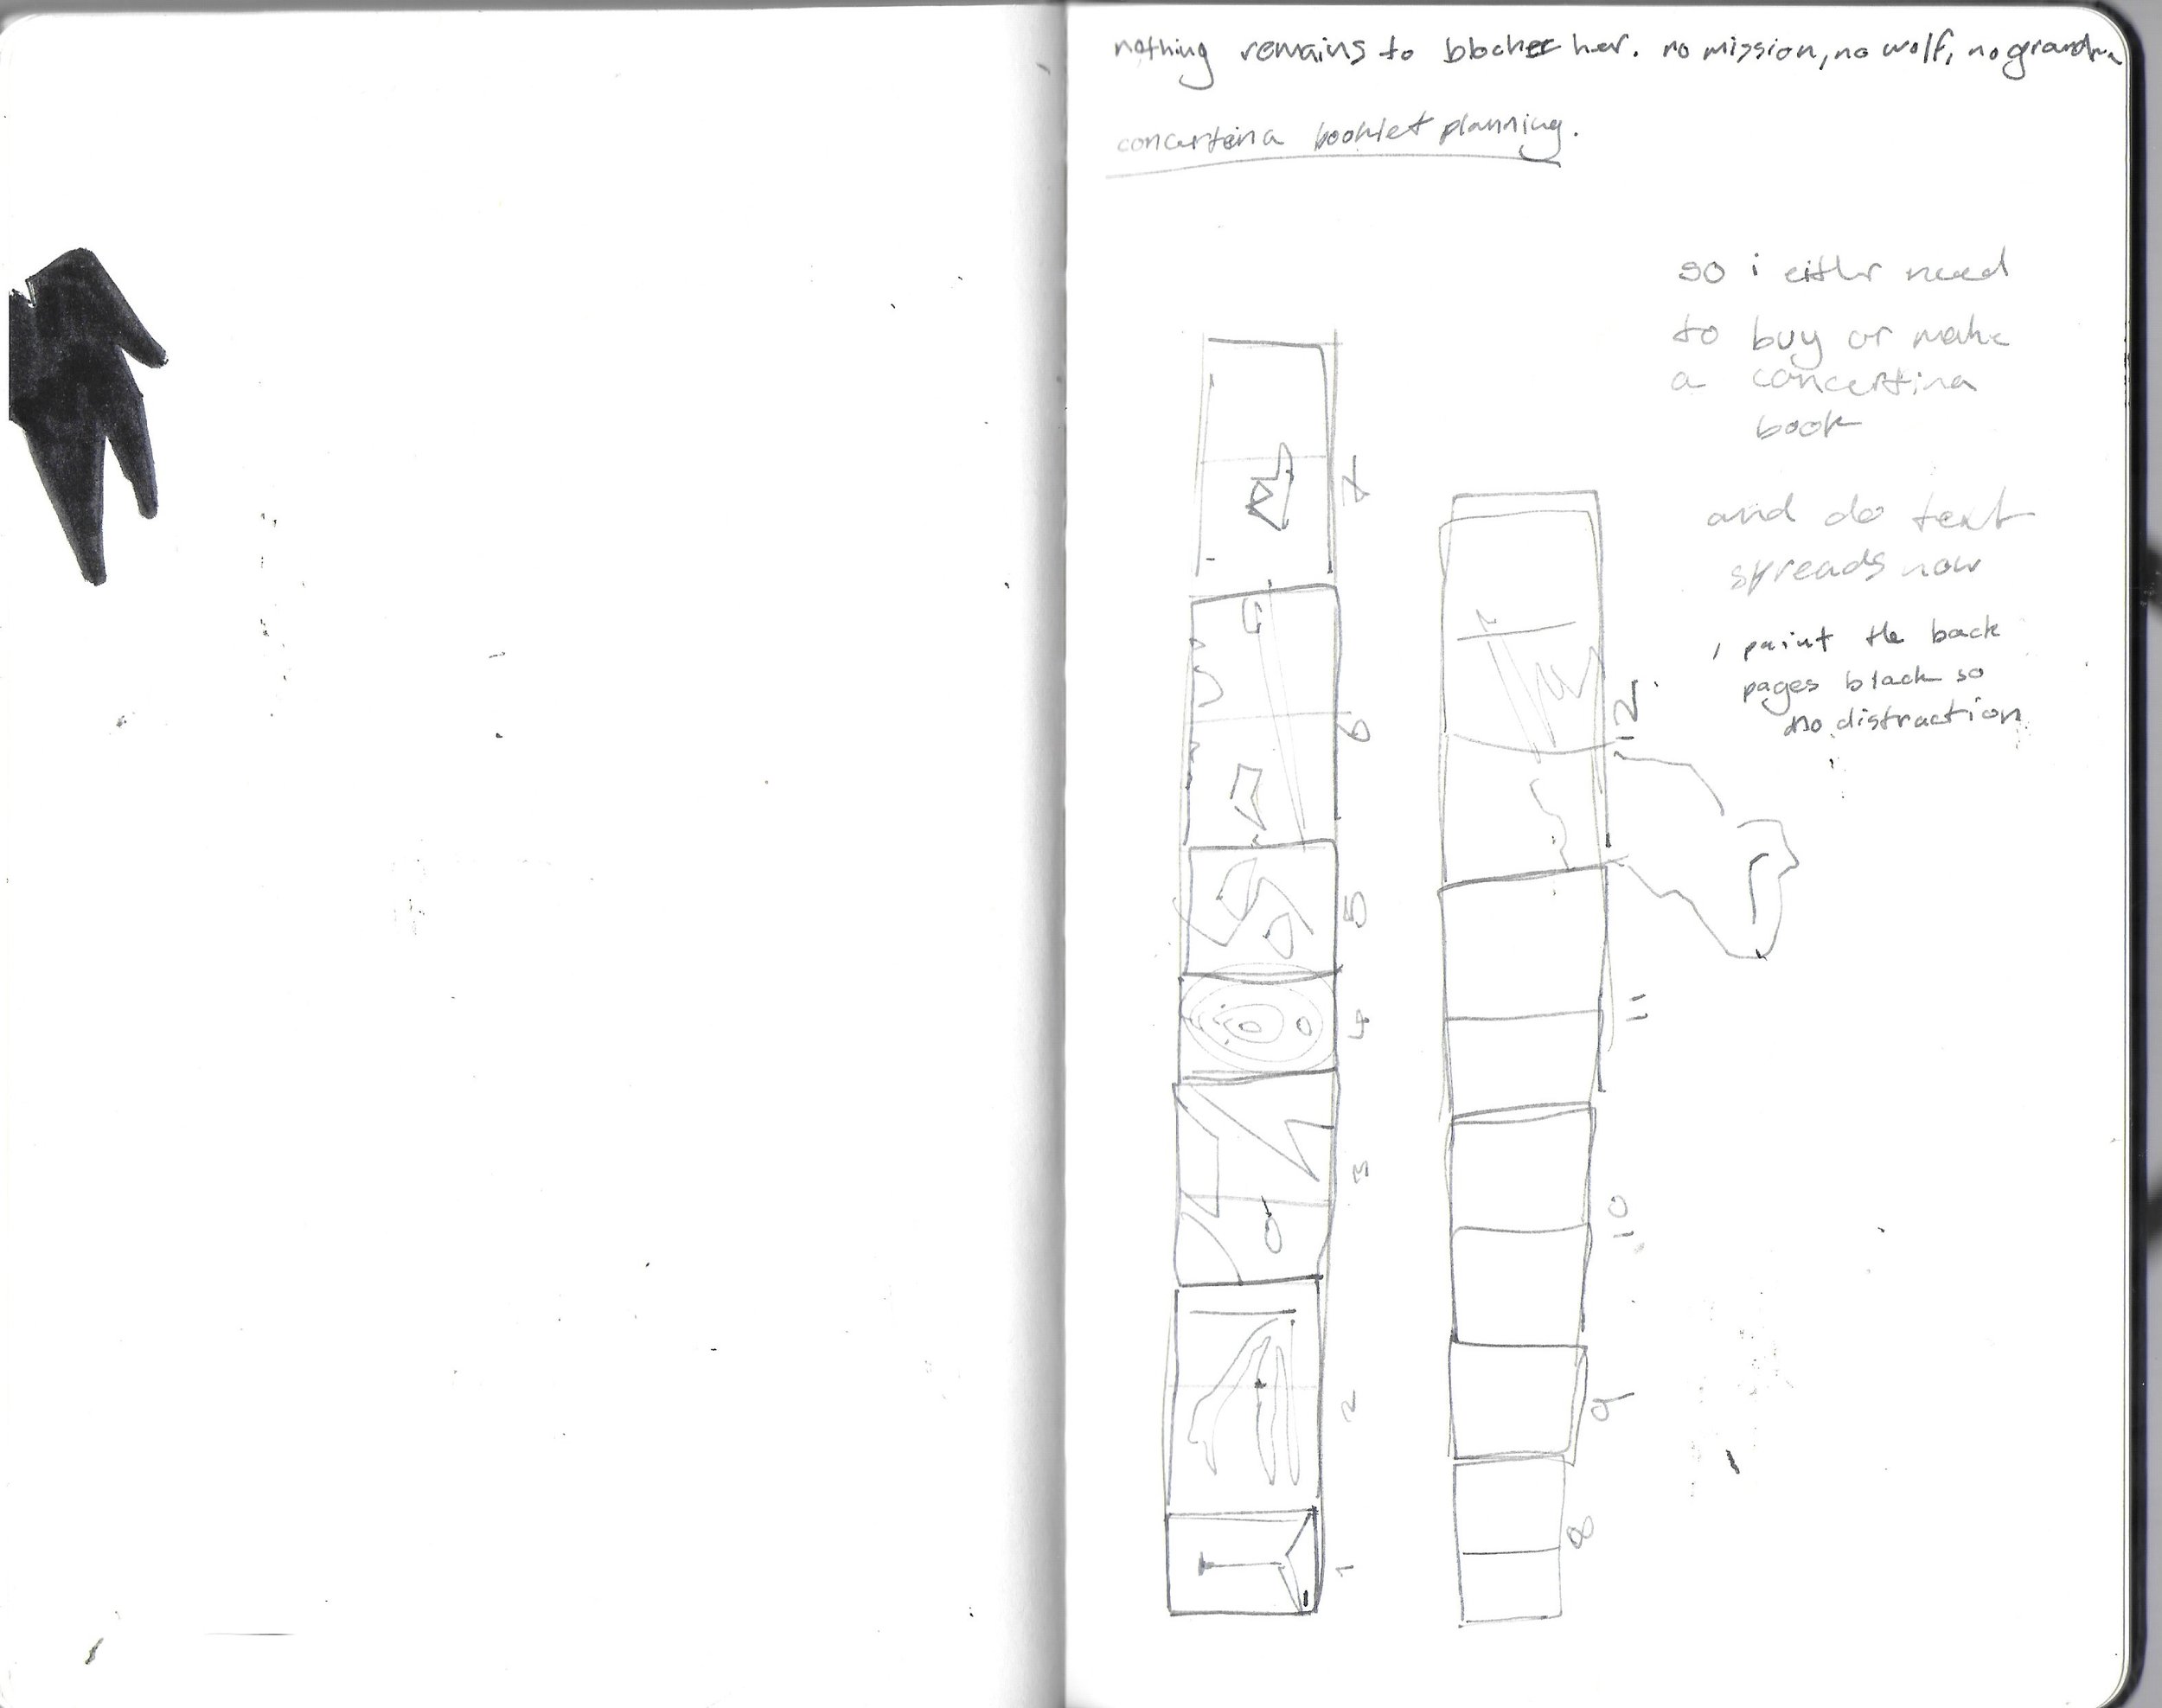 nothing remains to blocker her. no mission, no wolf, no grandma
concertina booklet planning.
so i either need
to buy or make
a concertina
book
and do text
spreads now
, paint the back
pages black so
no distraction
7
6
5
4
3
2
1
12
11
10
9
8